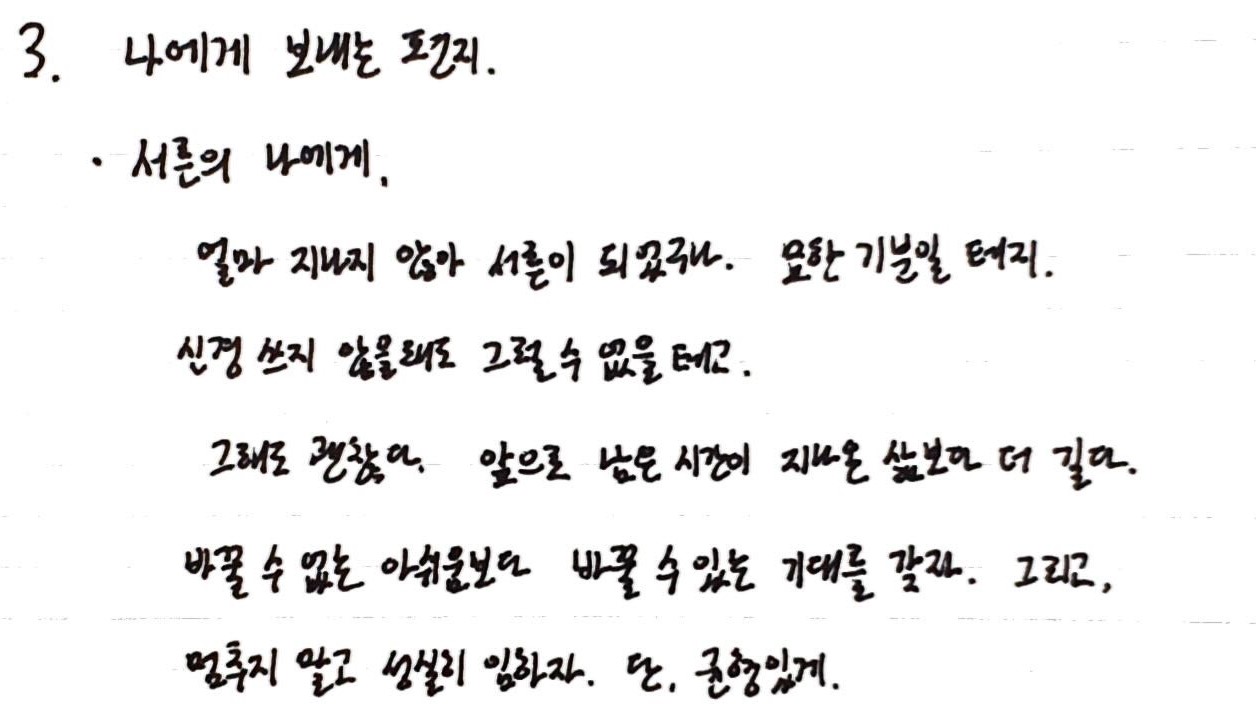 3. 나에게 보내는 편지.
· 서른의 나에게,
얼마 지나지 않아 서른이 되었구나. 묘한 기분일 테지.
신경 쓰지 않을래도 그럴 수 없을 테고.
그래도 괜찮다. 앞으로 남은 시간이 지나온 삶보다 더 길다.
바꿀 수 없는 아쉬움보다 바꿀 수 있는 기대를 갖자. 그리고,
멈추지 말고 성실히 임하자. 단, 균형있게.